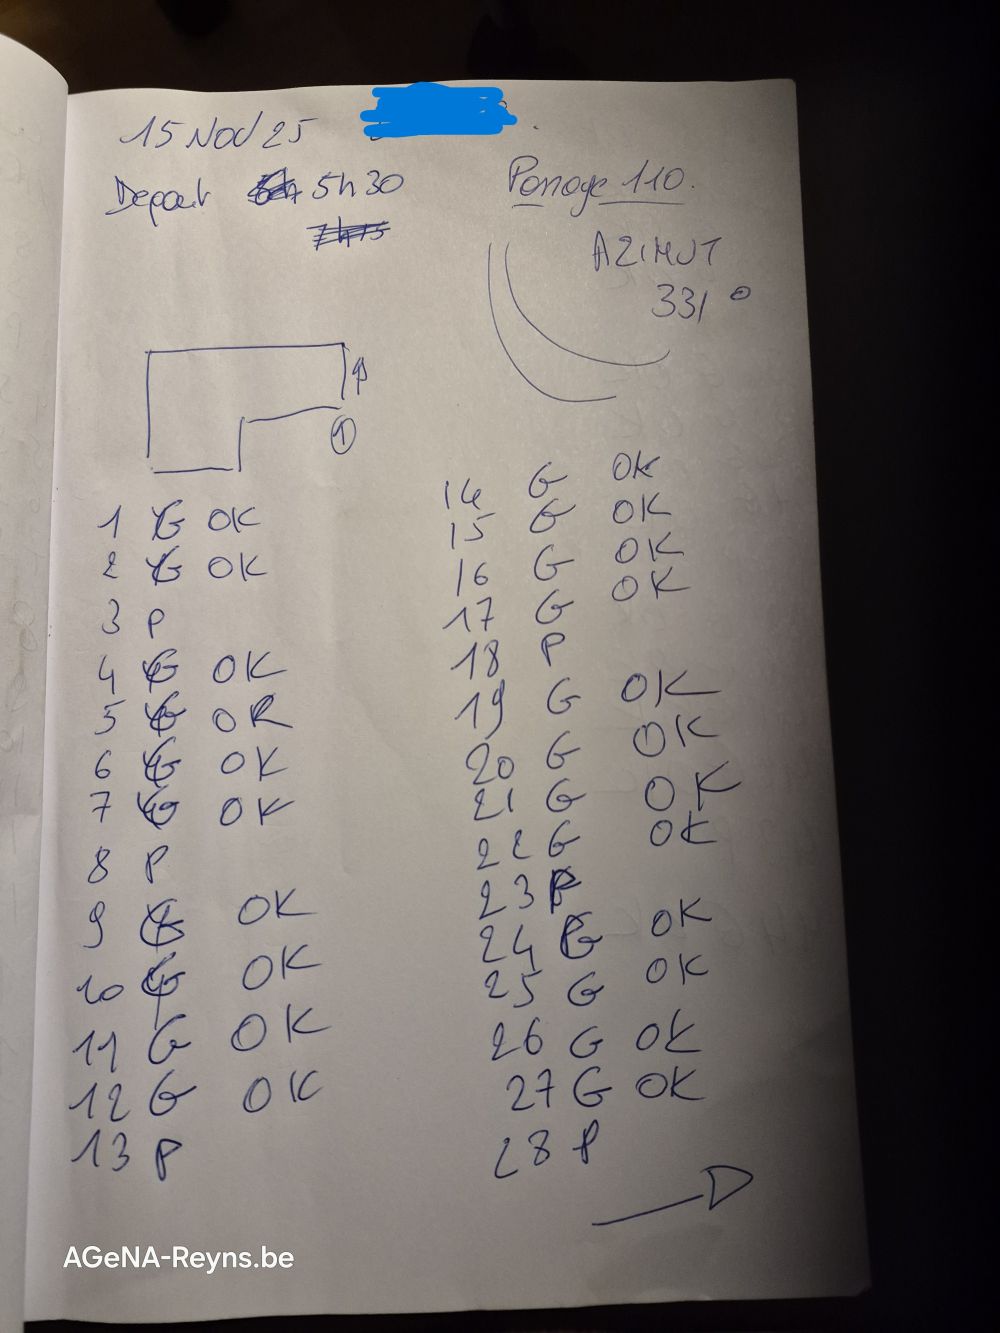 15 Nov 25
Depart 5h30
7h15
Panage 110.
AZIMUT
331°
1
1 G OK
2 G OK
3 P
4 G OK
5 G OK
6 G OK
7 G OK
8 P
9 G OK
10 G OK
11 G OK
12 G OK
13 P
14 G OK
15 G OK
16 G OK
17 G OK
18 P
19 G OK
20 G OK
21 G OK
22 G OK
23 P
24 G OK
25 G OK
26 G OK
27 G OK
28 P
AGeNA-Reyns.be